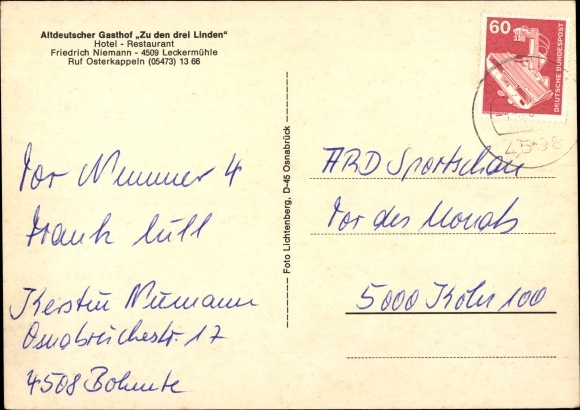 Altdeutscher Gasthof „Zu den drei Linden"
Hotel - Restaurant
Friedrich Niemann - 4509 Leckermühle
Ruf Osterkappeln (05473) 13 66
Tor Nummer 4
Frank Mill
Kerstin Niemann
Osnabrückerstr. 17
4508 Bohmte
Foto Lichtenberg, D-45 Osnabrück
60
DEUTSCHE BUNDESPOST
4508
ARD Sportschau
Tor des Monats
5000 Köln 100